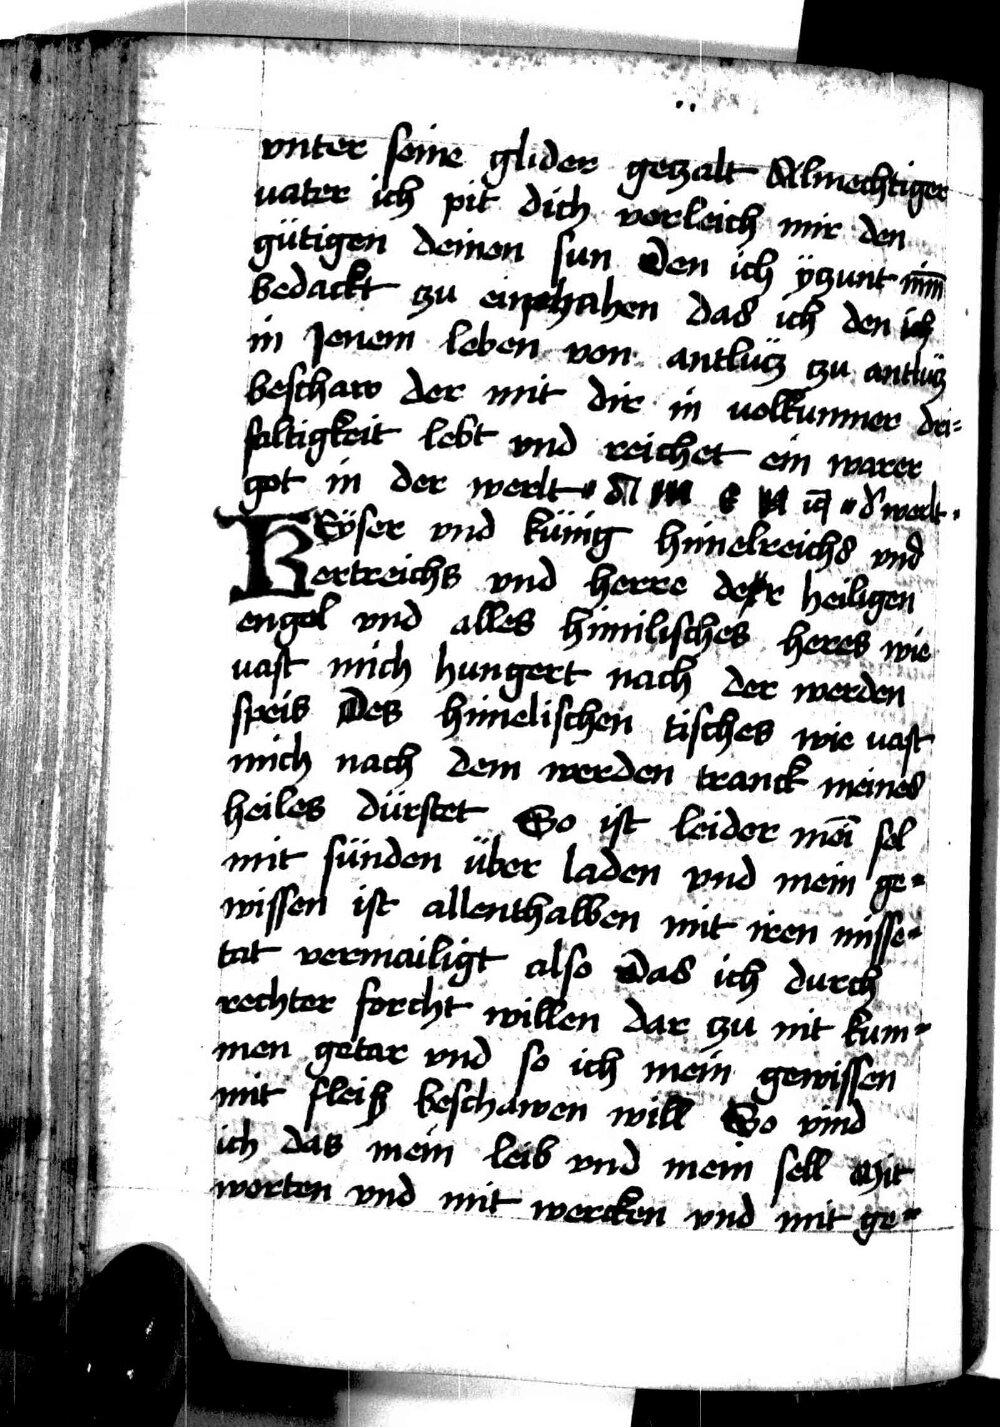 vnter seine glider gezalt Almechtiger
vater ich pit dich vorleich mir den
gütigen deinen sun den ich yczunt
bedackt zu einphahen das ich den ich
in Jenem leben von antlücz czu antlücz
beschaw der mit dir in volkumner dri=
faltigkeit lebt vnd reichet ein warer
got in der werlt A M E N d' werlt
KEyser vnd künig himelreichs vnd
ertreichs vnd herre der heiligen
engel vnd alles himilisches heres wie
vast mich hungert nach der werden
speis des himelischen tisches wie vast
mich nach dem werden tranck meines
heiles dürstet So ist leider mei sel
mit sünden über laden vnd mein ge=
wissen ist allenthalben mit iren misse=
tat vermailigt also das ich durch
rechter forcht willen dar zu nit kum=
men getar vnd so ich mein gewissen
mit fleiß beschawen will So vind
ich das mein leib vnd mein sell mit
worten vnd mit wercken vnd mit ge=